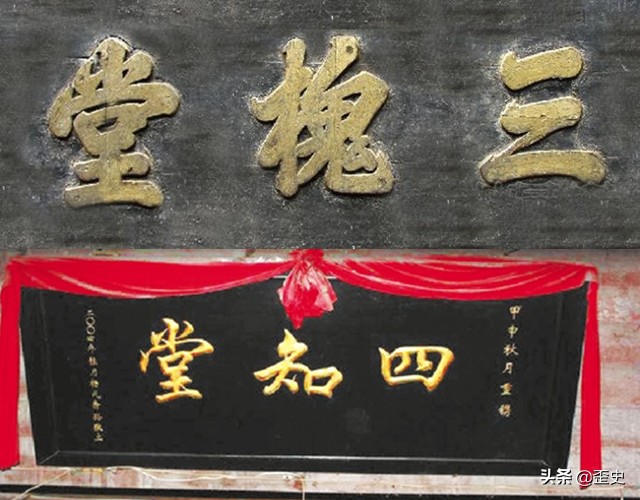 三槐堂
甲申秋月重
四知堂
二〇〇四年
头条 @歪史